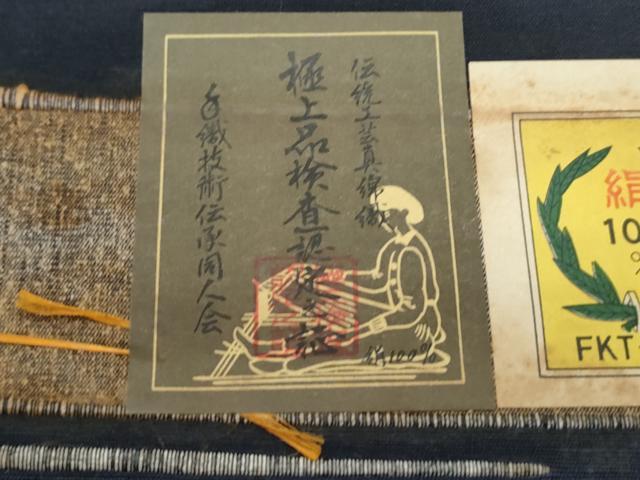 伝統工芸真綿織
極上品検査認定之証
手織技術伝承同人会
絹100%
絹
10
FKT-